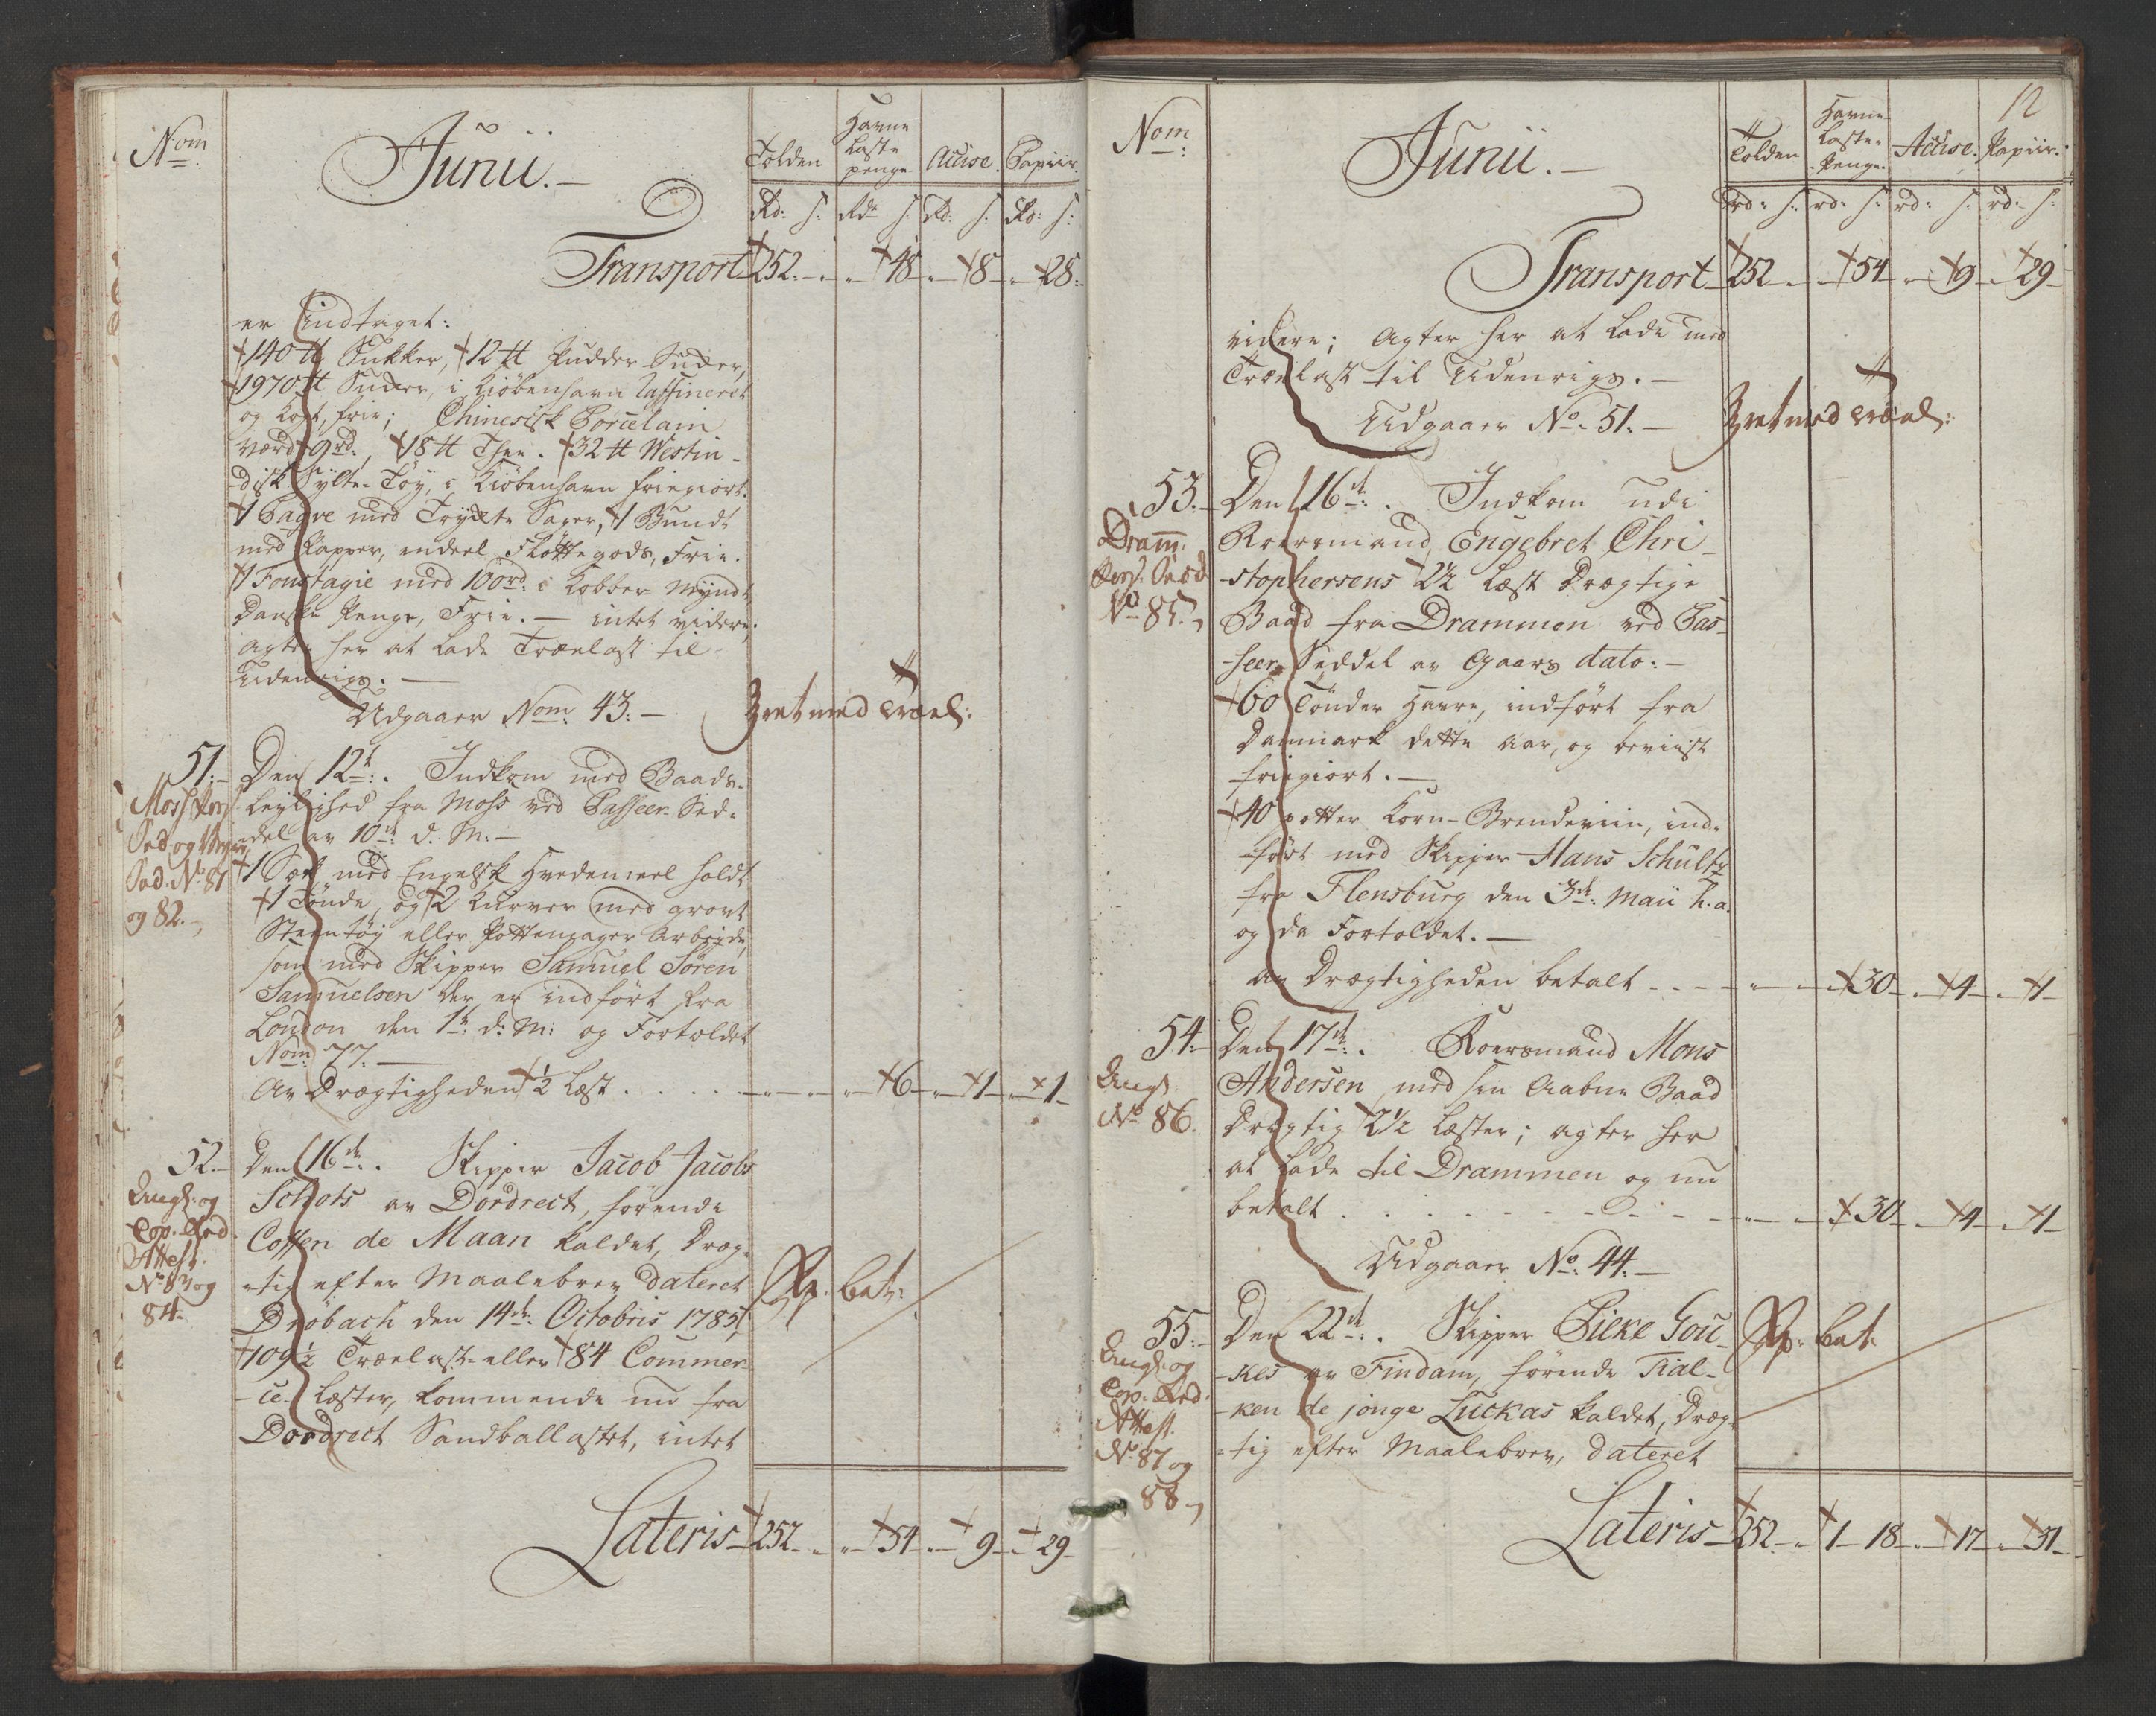 Nom:
Junii.
Tolden
Havne
Laste
penge
Accise.
Papiir.
Rd: s: Rd: s: Rd: s: Rd: s:
Transport 252. - " 48 - " 8 - " 28.
er Indtaget:
140 ℔ Sukker, 12 ℔ Pudder-Sucker,
1970 ℔ Sucker, i Kiöbenhavn Raffineret
og kogt, frie; Chinesisk Porcelain
værd 9rd., 18 ℔ Thee. 32 ℔ Westin-
disk Sylte-Töy, i Kiöbenhavn friegiort.
1 Paqve med Trykte Sager, 1 Bundt
med Papper, endeel Flöttegods, Frie.
1 Foustagie med 100rd: i Kobber Myndt
Danske Penge, Frie. — intet videre.
agter her at lade Trælast til
Udenrigs. —
Udgaaer Nom: 43. —
51. Den 12te: Indkom med Baads-
Leylighed fra Moss ved Passeer-Sed-
del av 10de: d. M. —
1 Sæk med Engelsk Hvedemeel holdt
1 Tönde, og 2 Kurver med grovt
Steentöy eller Pottemager Arbeide,
som med Skipper Samuel Sören
Samuelsen der er indfört fra
London den 1te: d: M: og Fortoldet
Nom: 77. —
Av Drægtigheden ½ Læst . . . . 6 - " 1 - " 1
og 82.
52. Den 16de: Skipper Jacob Jacobs
Schots av Dordrect, förende
Coffen de Maan kaldet, Dræg-
tig efter Maalebrev dateret
Dröbach den 14de: Octobris 1785,
109½ Trælast- eller 84 Commer-
ce-Læster, kommende nu fra
Dordrect Sandballastet, intet
Attest.
No 83 og
84.
Lateris 252. - " 54 - " 9 - " 29
12
Nom:
Junii. —
Tolden
Havne
Laste-
Penge.
Accise.
Papiir.
rd: s: rd: s: rd: s: rd: s:
Transport 252 - " 54 - " 9 - " 29
videre; agter her at lade med
Trælast til Udenrigs. —
Udgaaer No: 51. —
53. Den 16de: Indkom udi
Roersmand Engebret Chri-
stophersens 2½ Læst Drægtige
Baad fra Drammen ved Pas-
seer-Seddel av Gaars dato. —
60 Tönder Havre, indfört fra
Danmark dette aar, og beviist
friegiort. —
40 potter Korn-Brendeviin, ind-
fört med Skipper Hans Schultz
fra Flensburg den 3de: Maii h. a.
og da Fortoldet. —
av Drægtigheden betalt - - - 30 - " 4 - " 1
No 85.
54. Den 17de: Roersmand Mons
Andersen, med sin Aabne Baad
Drægtig 2½ Læster; agter her
at lade til Drammen og nu
betalt . . . . 30 - " 4 - " 1
Udgaaer No: 44. —
No 86.
55. Den 22de: Skipper Sieke Gou-
kes av Findam, förende Tial-
ken de jonge Luckas kaldet, Dræg-
tig efter Maalebrev, dateret
Attest.
No 87 og
88.
Lateris 252 - " 1 - 18 - " 17 - " 31